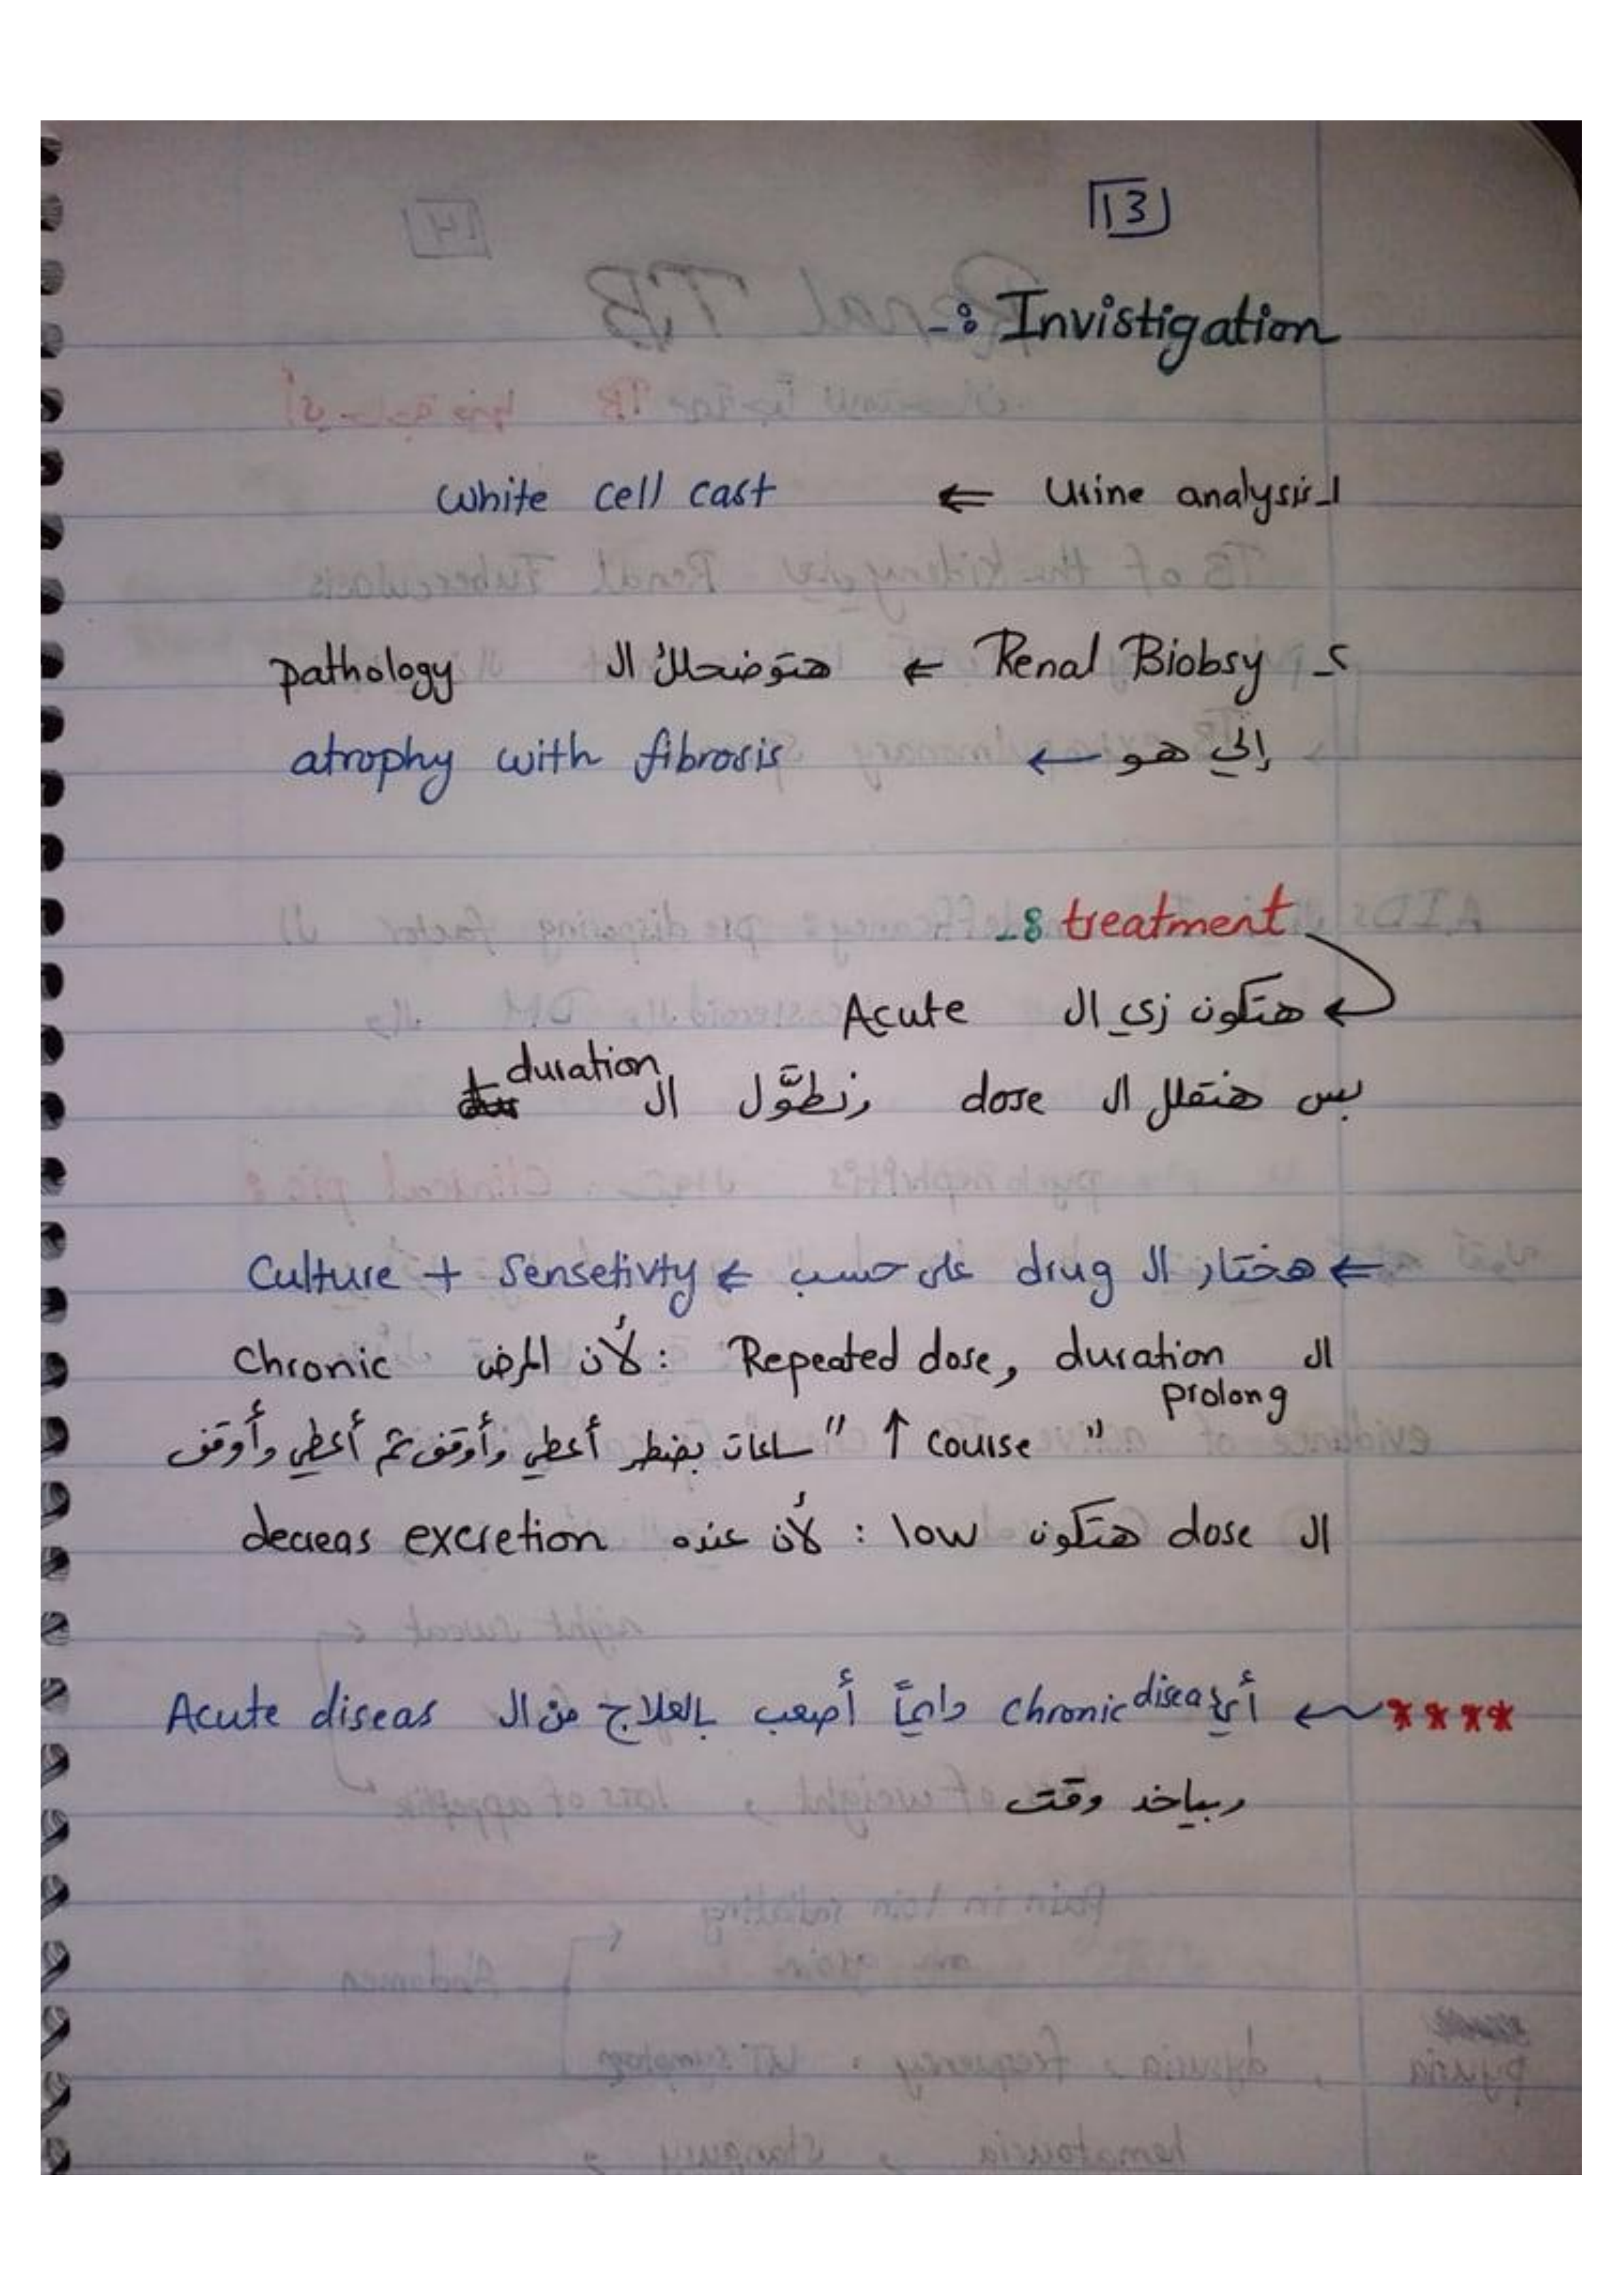 13
Invistigation :-
1- Urine analysis ⇐ white cell cast
2- Renal Biobsy ⇐ هتوضحلك ال pathology
إلي هو ← atrophy with fibrosis
treatment :-
هتكون زي ال Acute
بس هنقلل ال dose ونطوَّل ال duration
⇐ هختار ال drug على حسب ⇐ Culture + Sensetivty
ال Repeated dose, duration : لأن المرض chronic
"prolong course ↑" ساعات بضطر أعطي وأوقف ثم أعطي وأوقف
ال dose هتكون low : لأن عنده decreas excretion
**** ← أي chronic diseas دايماً أصعب بالعلاج من ال Acute diseas
وبياخد وقت